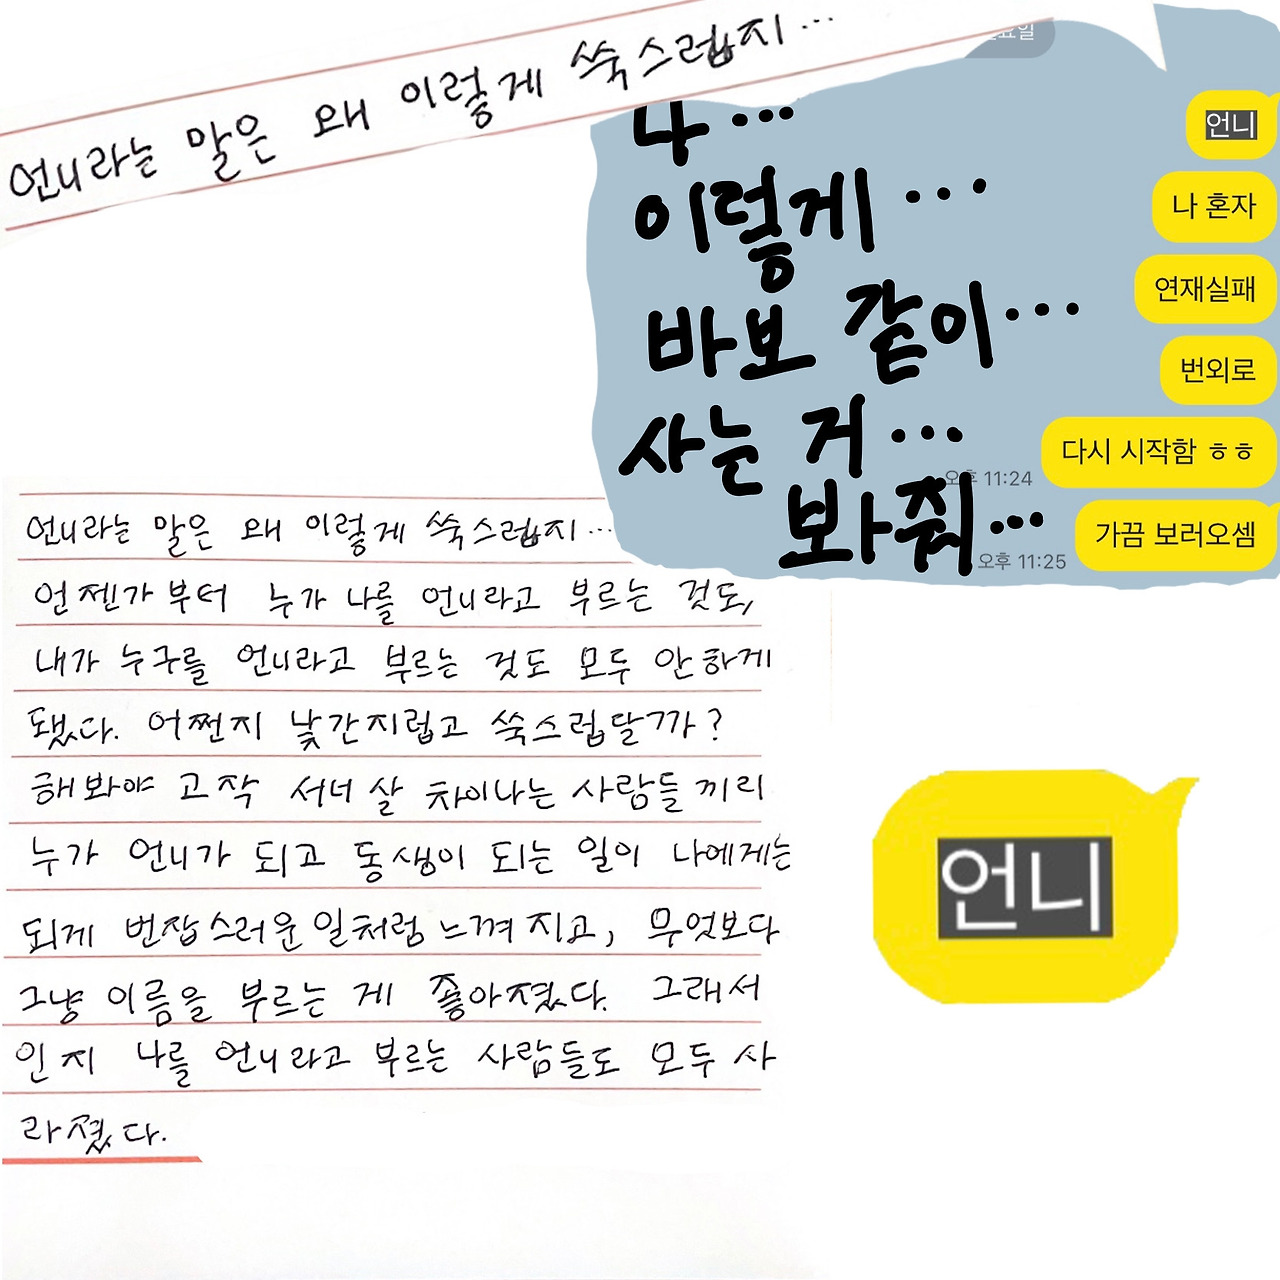 언니라는 말은 왜 이렇게 쑥스럽지...
나...
이렇게...
바보 같이...
사는 거...
봐줘...
언니
나 혼자
연재실패
번외로
다시 시작함 ㅎㅎ
오후 11:24
가끔 보러오셈
오후 11:25
언니라는 말은 왜 이렇게 쑥스럽지...
언젠가부터 누가 나를 언니라고 부르는 것도,
내가 누구를 언니라고 부르는 것도 모두 안하게
됐다. 어쩐지 낯간지럽고 쑥스럽달까?
해봐야 고작 서너 살 차이나는 사람들 끼리
누가 언니가 되고 동생이 되는 일이 나에게는
되게 번잡스러운 일처럼 느껴지고, 무엇보다
그냥 이름을 부르는 게 좋아졌다. 그래서
인지 나를 언니라고 부르는 사람들도 모두 사
라졌다.
언니